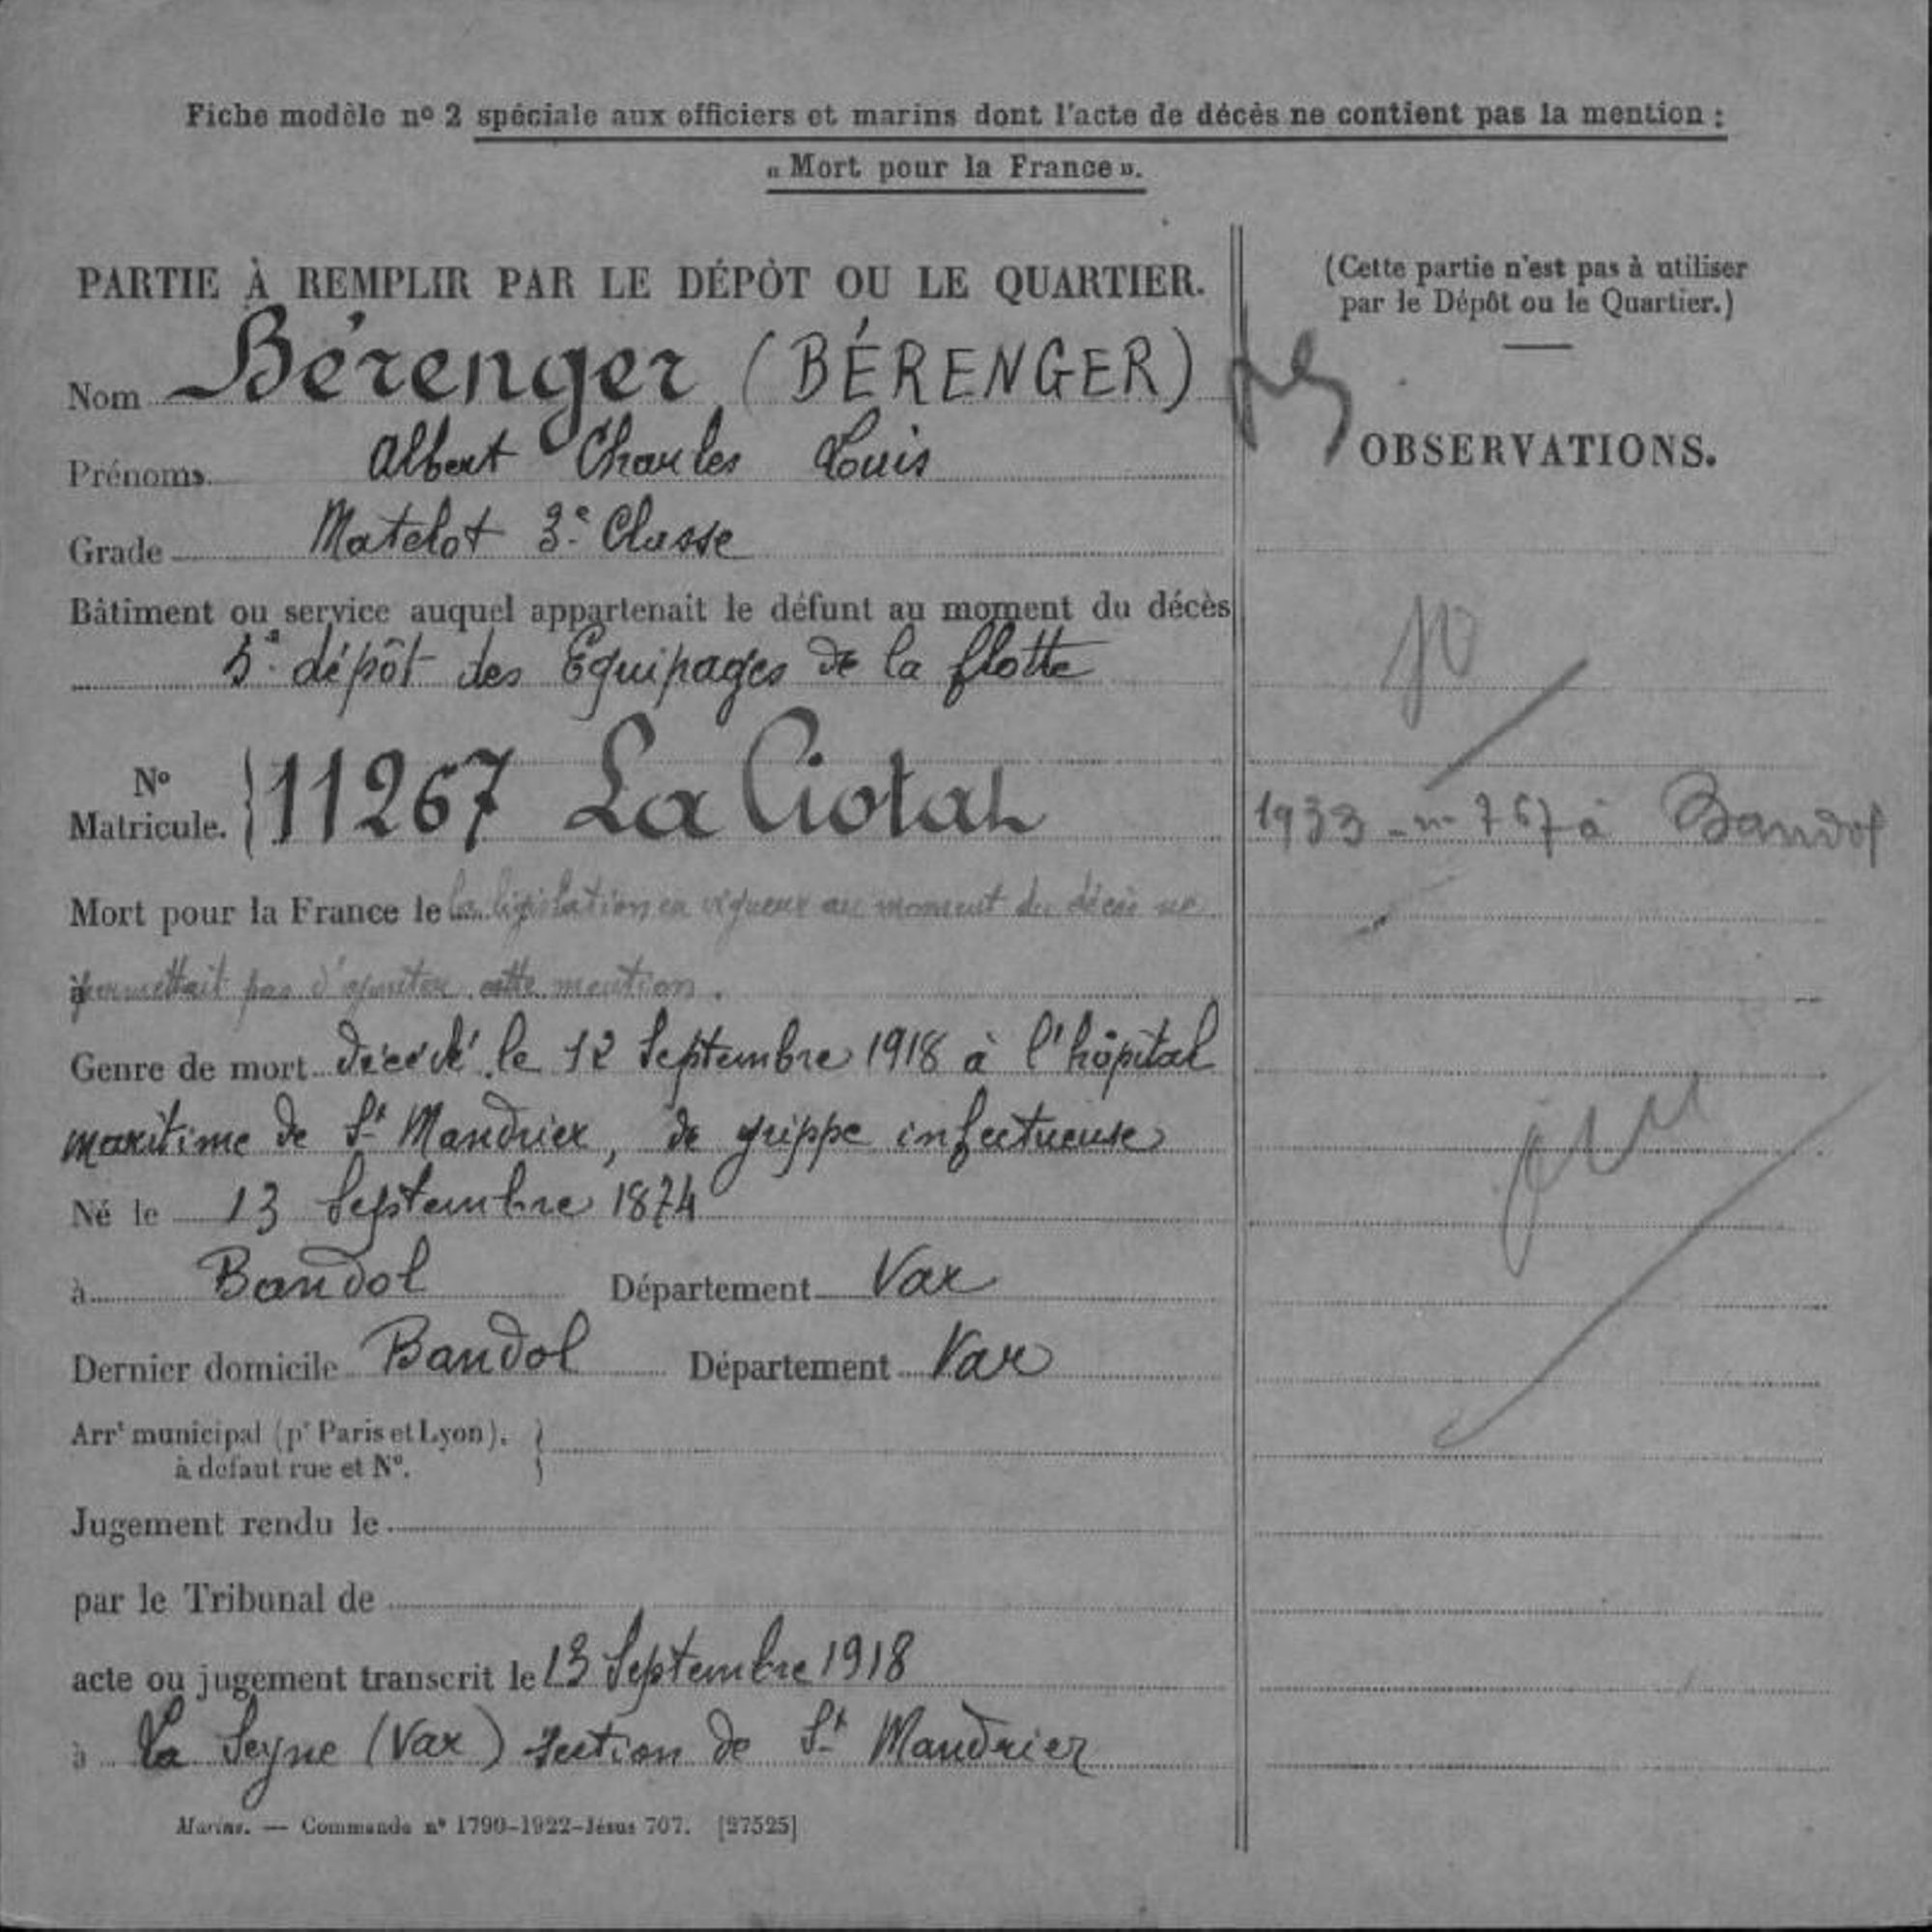 Fiche modèle nº 2 spéciale aux officiers et marins dont l'acte de décès ne contient pas la mention :
« Mort pour la France ».
PARTIE À REMPLIR PAR LE DÉPÔT OU LE QUARTIER.
Nom Bérenger (BÉRENGER)
Prénoms Albert Charles Louis
Grade Matelot 3e Classe
Bâtiment ou service auquel appartenait le défunt au moment du décès
5e dépôt des Equipages de la flotte
Nº
Matricule. } 11267 La Ciotat
Mort pour la France le la législation en vigueur au moment du décès ne
à permettait pas d'ajouter cette mention.
Genre de mort décédé le 12 Septembre 1918 à l'hôpital
maritime de St Mandrier, de grippe infectueuse
Né le 13 Septembre 1874
à Bandol Département Var
Dernier domicile Bandol Département Var
Arrt municipal (pr Paris et Lyon), }
à défaut rue et Nº.
Jugement rendu le
par le Tribunal de
acte ou jugement transcrit le 13 Septembre 1918
à La Seyne (Var) section de St Mandrier
Marine. — Commande nº 1790-1922-Jésus 707. [27525]
(Cette partie n'est pas à utiliser
par le Dépôt ou le Quartier.)
OBSERVATIONS.
1933 - n- 767 à Bandol